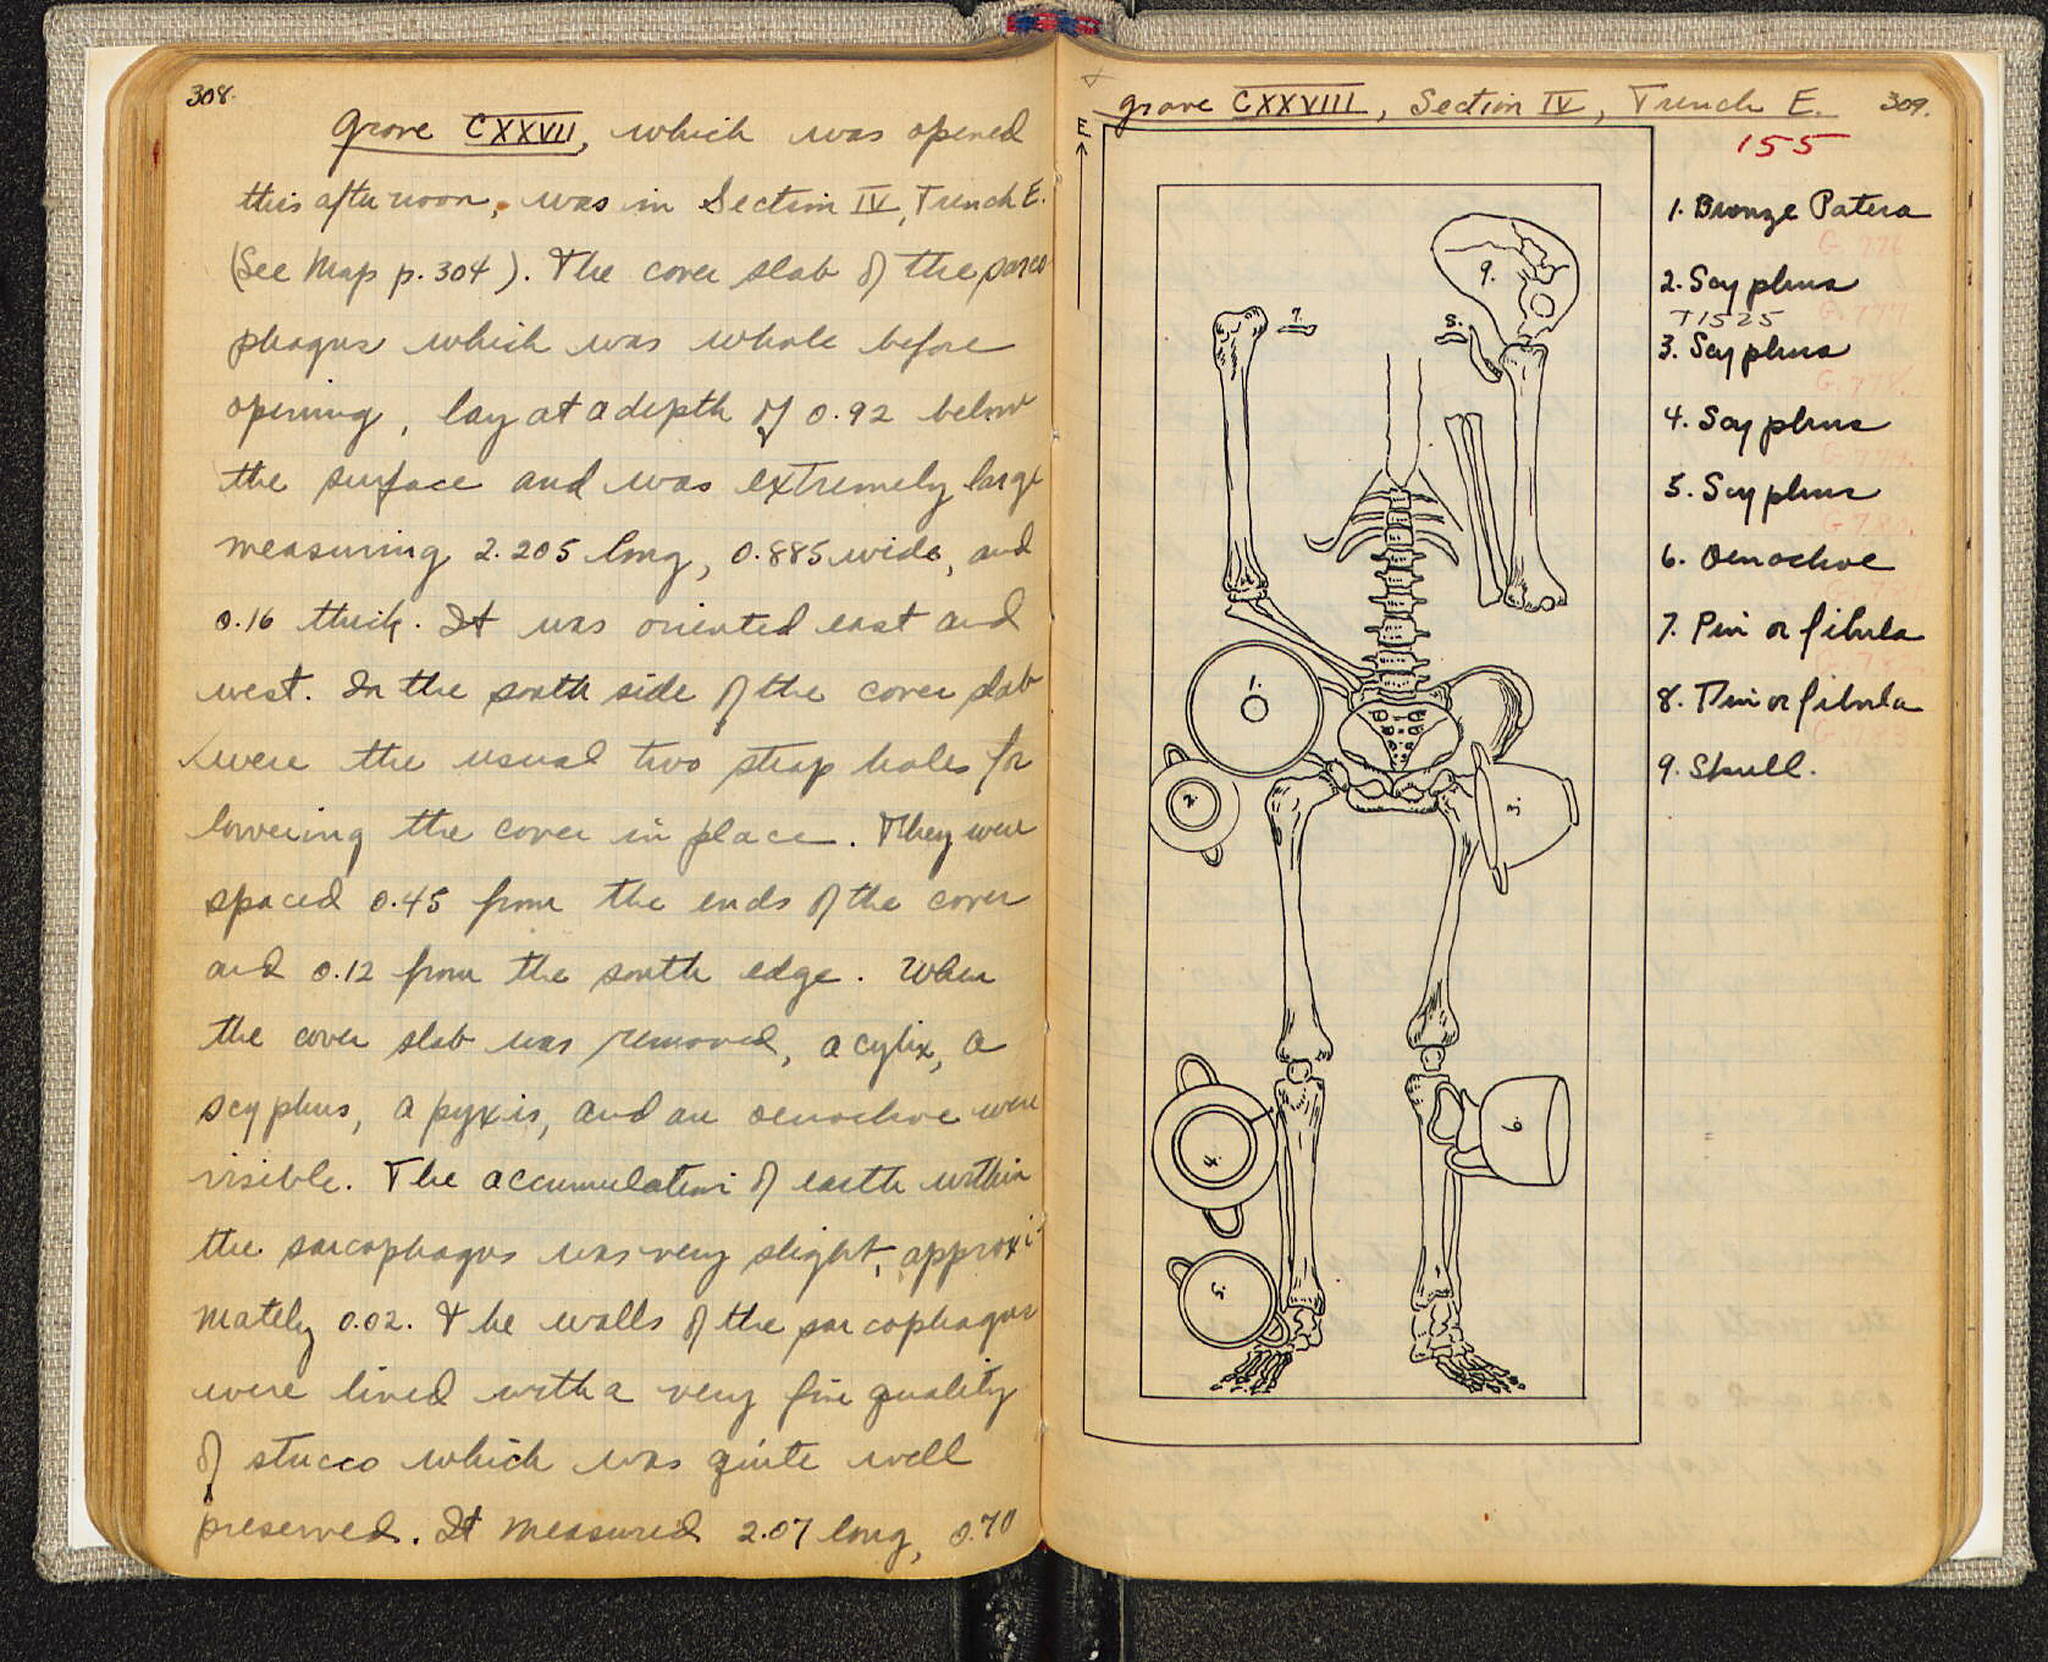 308.
Grave CXXVII, which was opened
this afternoon, was in Section IV, Trench E.
(See Map p. 304). The cover slab of the sarco
phagus which was whole before
opening, lay at a depth of 0.92 below
the surface and was extremely large
measuring 2.205 long, 0.885 wide, and
0.16 thick. It was oriented east and
west. In the south side of the cover slab
were the usual two strap holes for
lowering the cover in place. They were
spaced 0.45 from the ends of the cover
and 0.12 from the south edge. When
the cover slab was removed, a cylix, a
scyphus, a pyxis, and an oenochoe were
visible. The accumulation of earth within
the sarcophagus was very slight, approxi-
mately 0.02. The walls of the sarcophagus
were lined with a very fine quality
of stucco which was quite well
preserved. It measured 2.07 long, 0.70
Grave CXXVIII, Section IV, Trench E. 309.
155
E
1. Bronze Patera
G. 776
2. Scyphus
T1525 G. 777
3. Scyphus
G. 778.
4. Scyphus
G 779.
5. Scyphus
G 780.
6. Oenochoe
G. 781
7. Pin or fibula
G. 782
8. Pin or fibula
G. 783
9. Skull.
9.
7.
8.
1.
2.
3.
4.
6.
5.